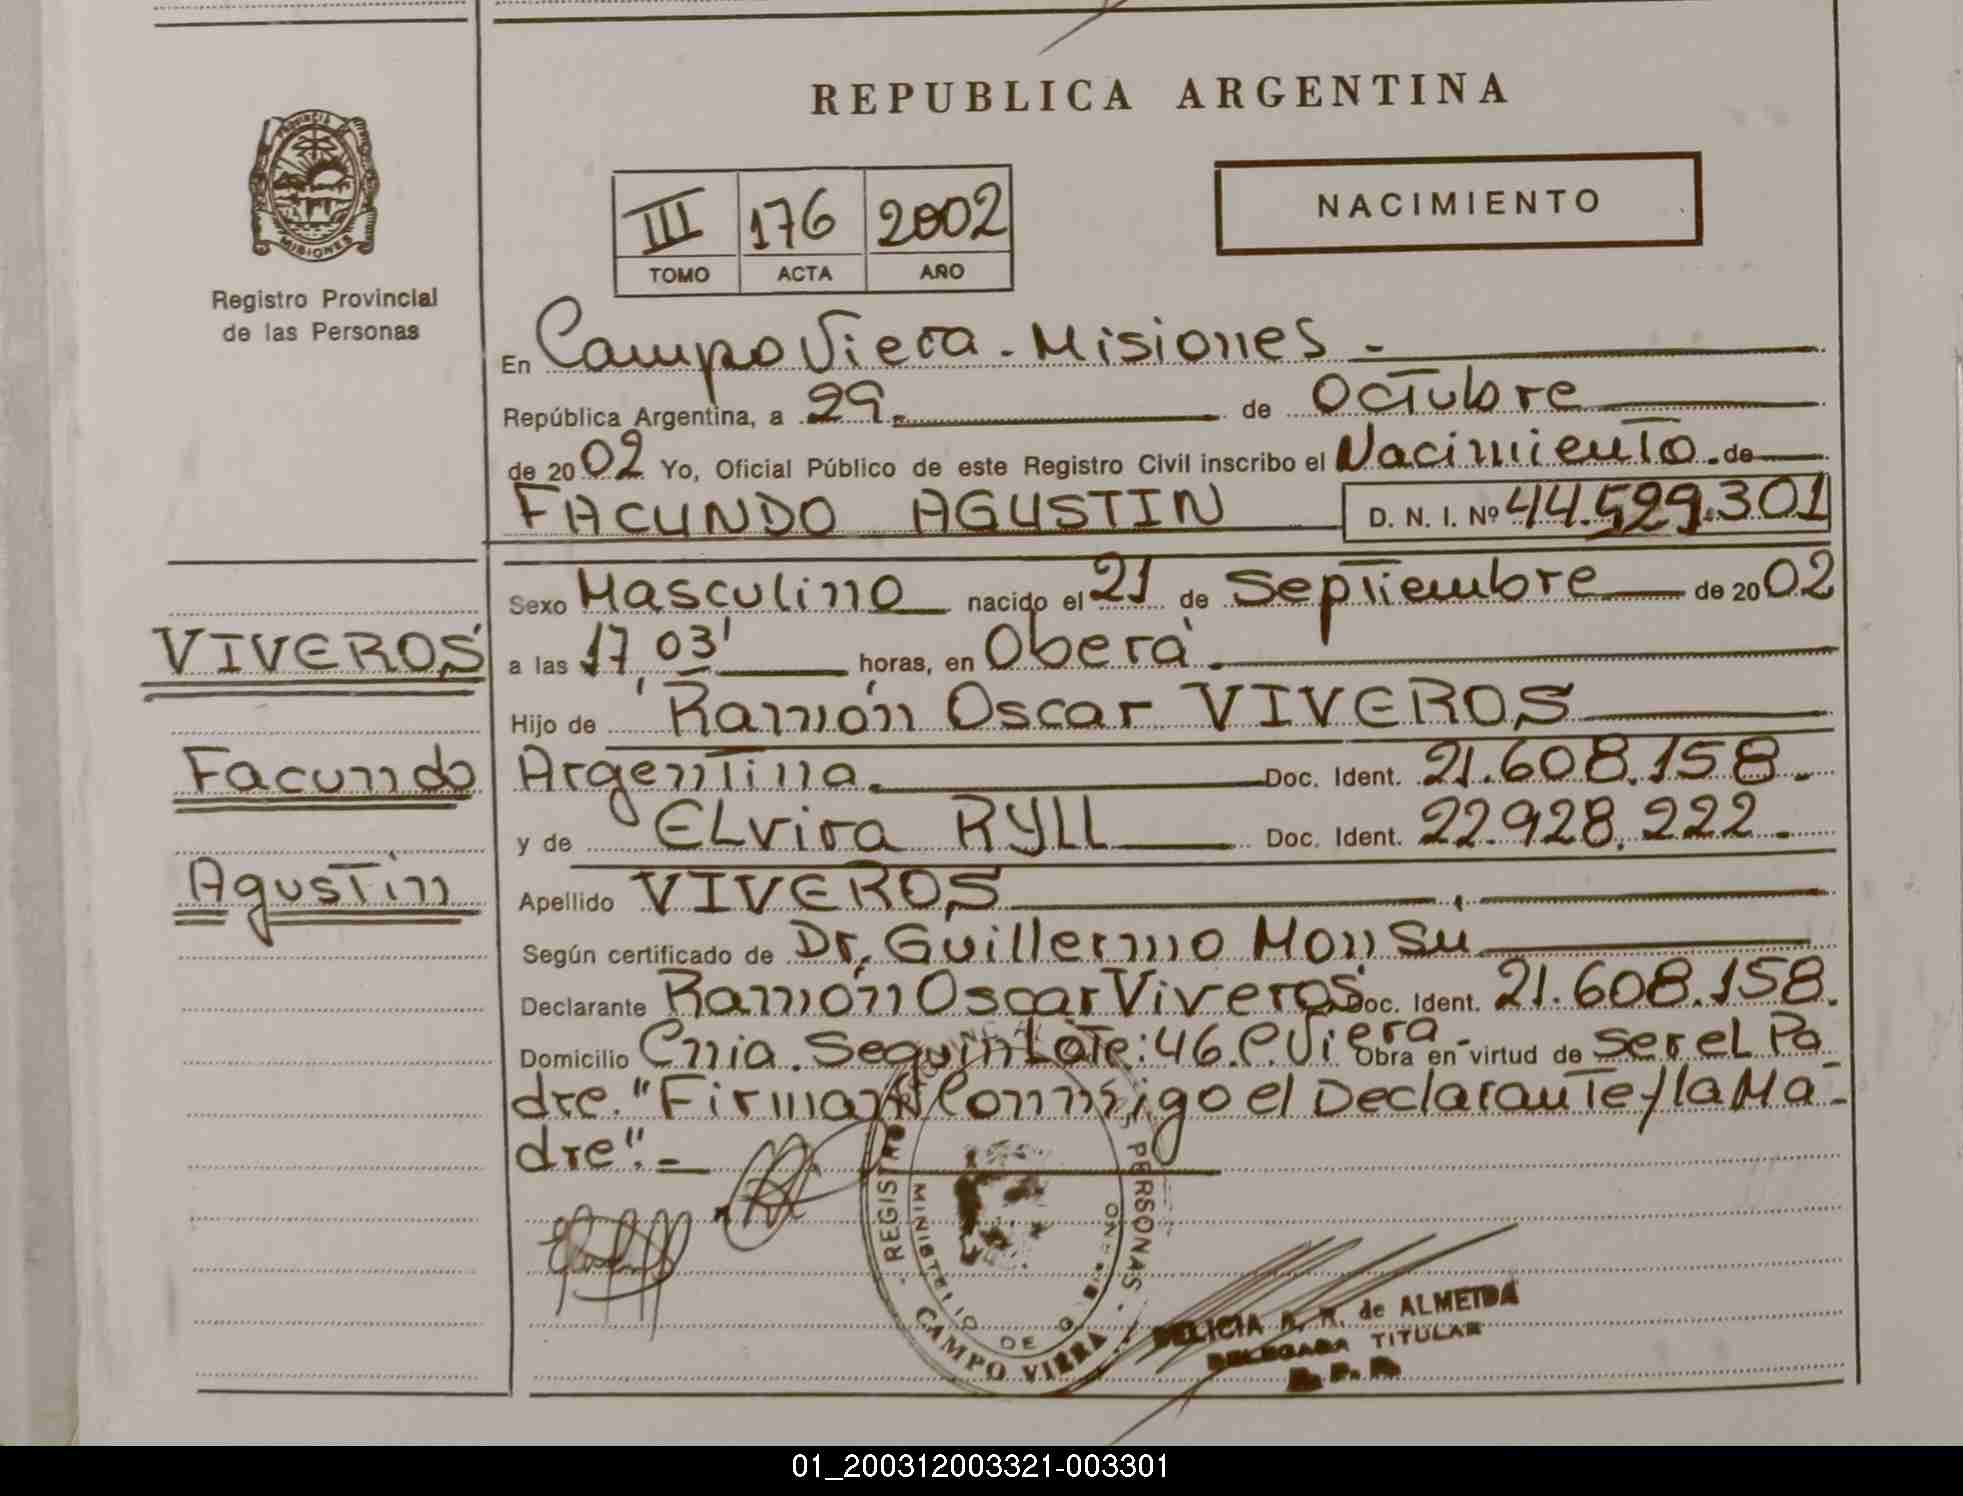 REPUBLICA ARGENTINA
PROVINCIA DE
MISIONES
Registro Provincial
de las Personas
NACIMIENTO
III 176 2002
TOMO ACTA AÑO
En Campo Viera - Misiones -
República Argentina, a 29. de Octubre
de 2002 Yo, Oficial Público de este Registro Civil inscribo el Nacimiento. de
FACUNDO AGUSTIN D. N. I. Nº 44.529.301
Sexo Masculino nacido el 21 de Septiembre de 2002
VIVEROS
a las 17 03' horas, en Oberá.
Hijo de Ramón Oscar VIVEROS
Facundo
Argentina. Doc. Ident. 21.608.158.
y de ELvira RYLL Doc. Ident. 22.928.222.
Agustin
Apellido VIVEROS
Según certificado de Dr. Guillermo Monsu
Declarante Ramón Oscar Viveros Doc. Ident. 21.608.158.
Domicilio Cnia. Seguin Lote: 46. C. Viera - Obra en virtud de ser el Pa
dre. "Firman Conmigo el Declarante y la Ma-
dre". -
REGISTRO PERSONAS
MINISTERIO DE
CAMPO VIERA
DELICIA R. R. de ALMEIDA
DELEGADA TITULAR
R. P. P.
01_200312003321-003301